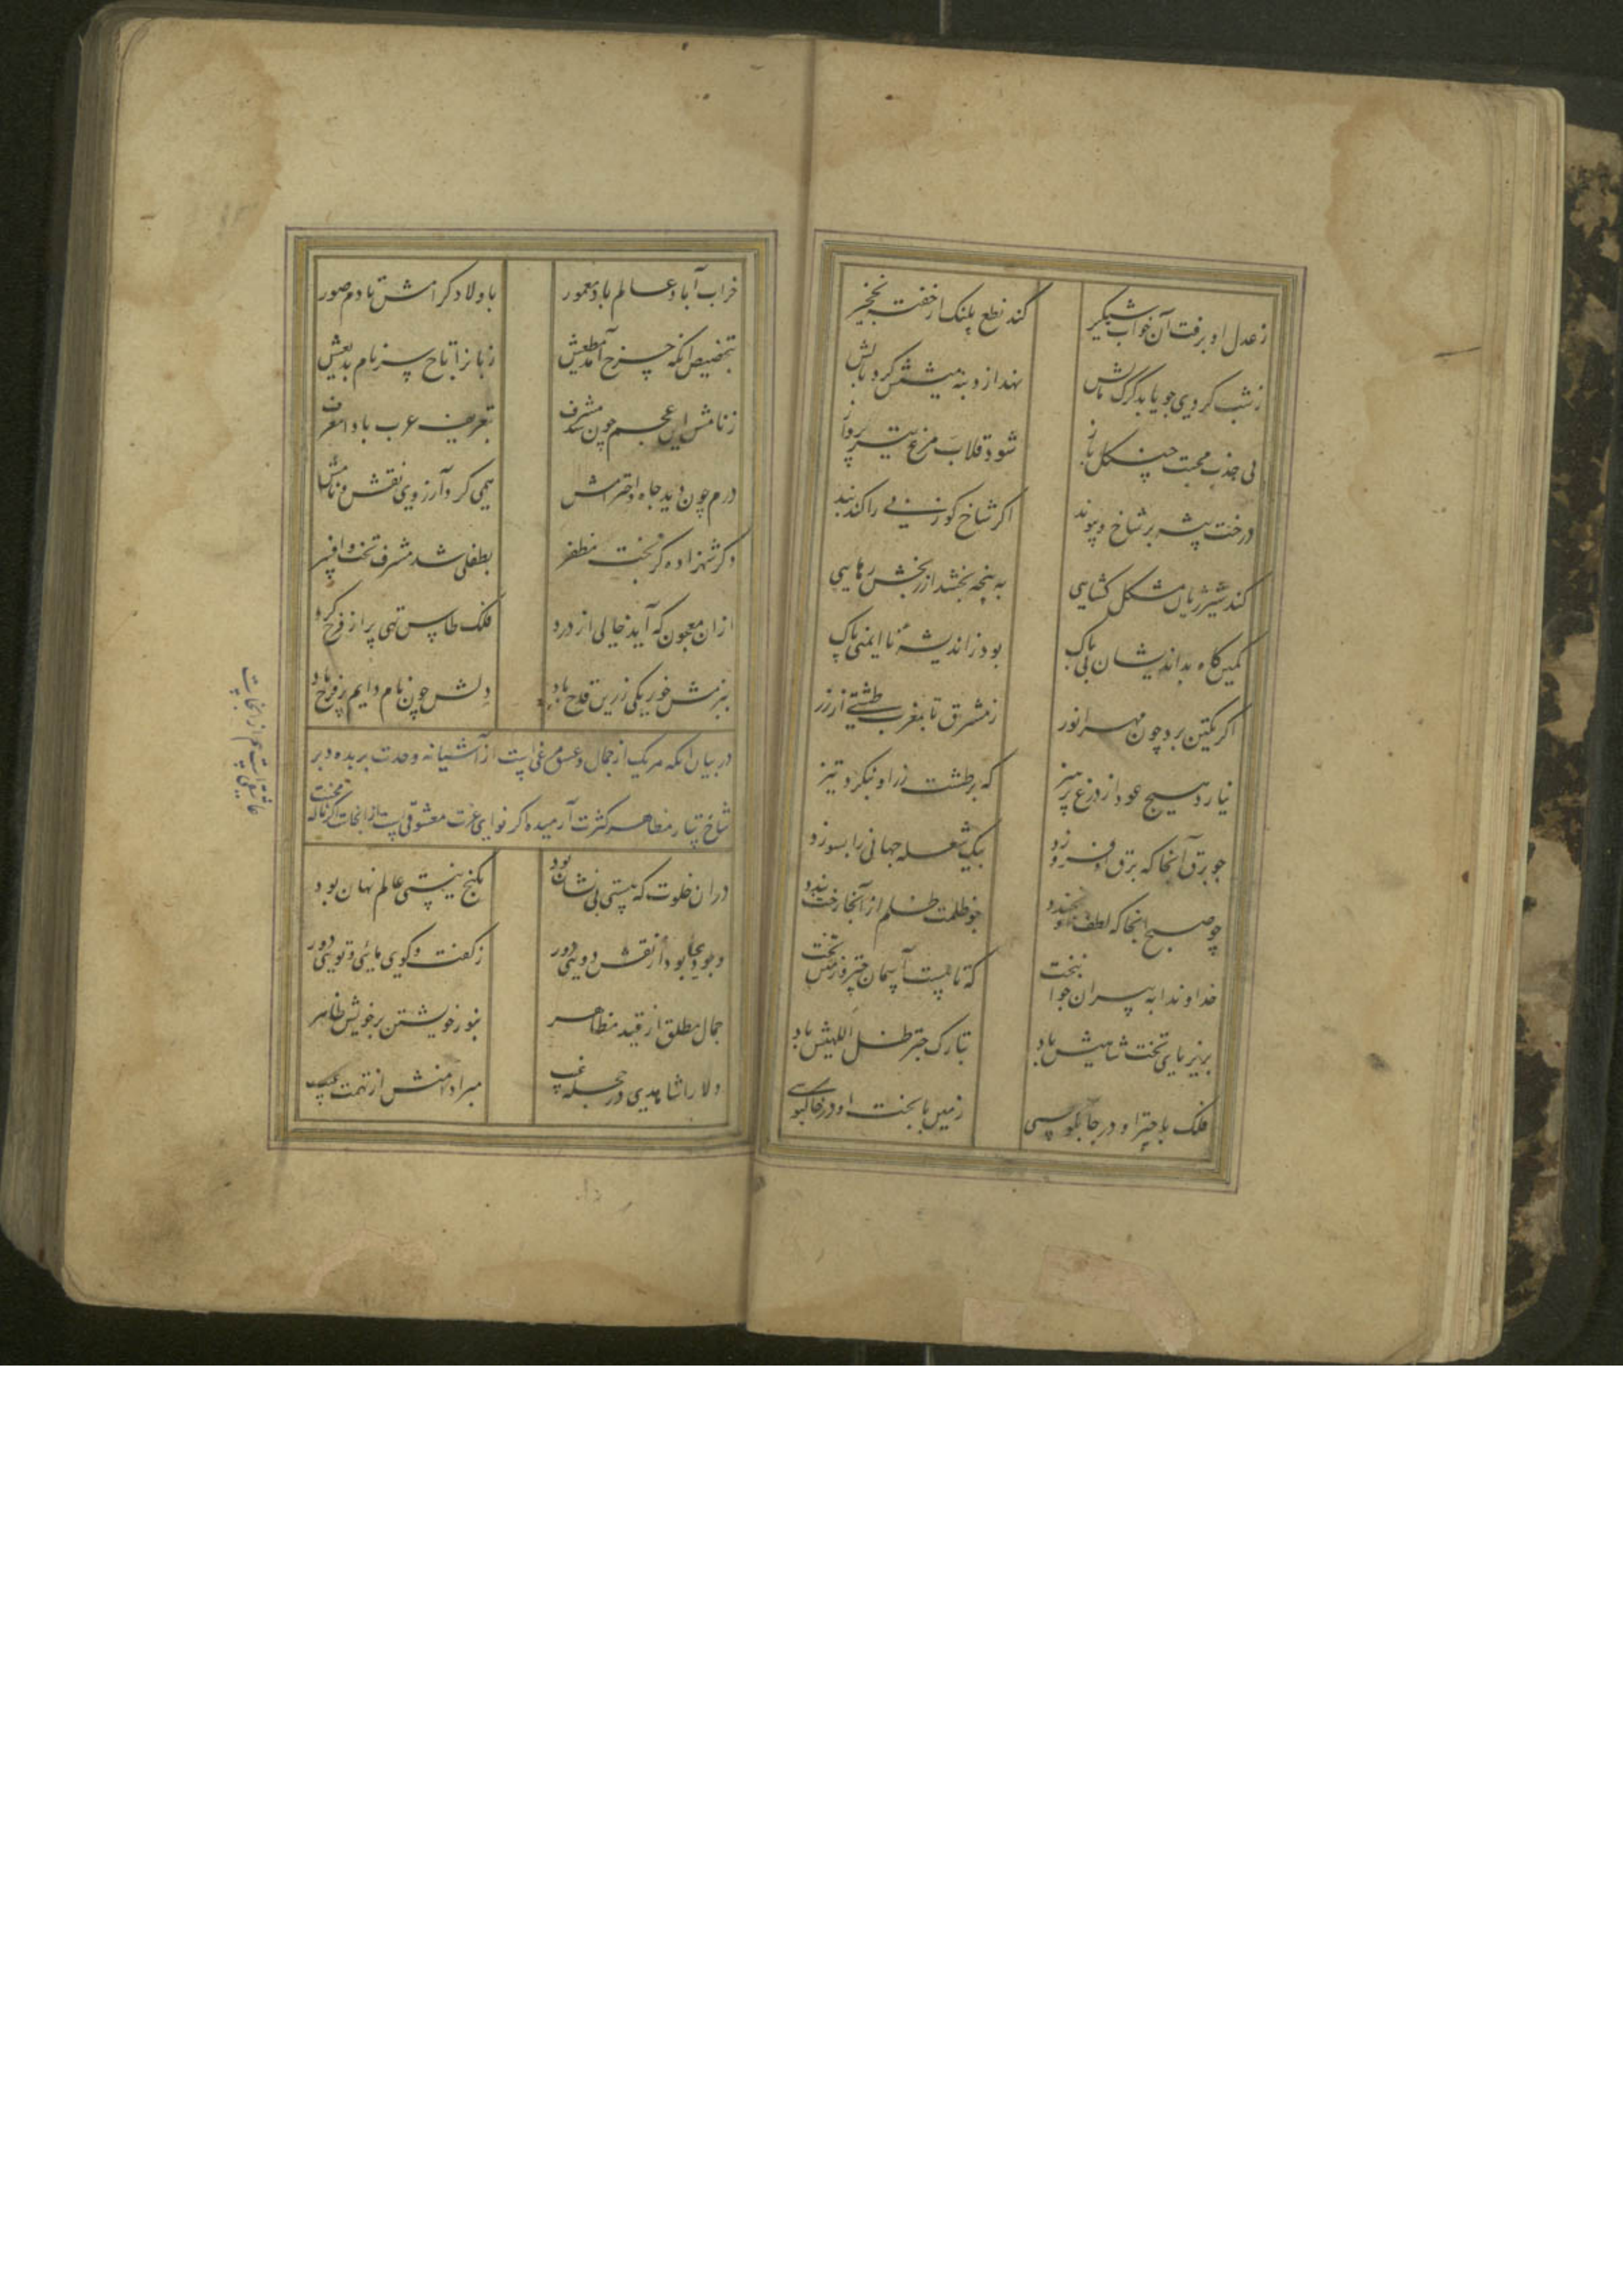 ز عدل او برفت آن خواب شبگیر
کند نطع پلنک از خفت نخجیر
ز شب کردی جو یابد کرک مالش
نهد از دنبه میشش کرد بالش
پی جذب محبت چنکل باز
شود قلاب مرغ تیز پرواز
درخت پیشه بر شاخ و پیوند
اکر شاخ کوزنی را کند بند
کند شیر ژیان مشکل کشایی
به پنجه بخشد از بخش رهایی
کمین کاه بداندیشان بی باک
بود ز اندیشه نا ایمنی پاک
اکر یکتن برد چون مهر انور
ز مشرق تا بمغرب طشتی از زر
نیارد هیچ عود از درع پر میز
که بر طشت زر او بنکرد تیز
جو برق آنجا که برق افروزد
بیک شعله جهانی را بسوزد
چو صبح انجا که لطف او بخندد
جو ظلمت ظلم از آنجا رخت بندد
خداوندا به پیران جوان بخت
که تا هست آسمان چتر و زمین تخت
بزیر پای تخت شاهیش باد
بتارک چتر ظل اللهیش باد
فلک با چتر او در چابلوسی
زمین با تخت او در خاکبوسی
خراب آباد عالم باد معمور
باولاد کرامش تا دم صور
بتخصیص انکه چرخ آمد مطیعش
زبانرا تاج سر نام بدیعش
ز نامش این عجم چون شد مشرف
بتعریف عرب بادا معرف
درم چون دید جاه و احترامش
همی کرد آرزوی نقش و نامش
دکر شهزاده کز بخت مظفر
بطفلی شد مشرف تخت و افسر
ازان معجون که آید خالی از درد
فلک طاس تهی پر از فرح کرد
ببزمش خور یکی زرین قدح باد
دلش چون نام دایم پر فرح باد
در بیان انکه هریک از جمال و عشق مرغی است از آشیانه وحدت بریده و بر
شاخسار مظاهر کثرت آرمیده اکر نوای عزت معشوقی است از انجاست و اکر ناله محبت
عاشقی است هم از انجاست
دران خلوت که هستی بی نشان بود
بکنج نیستی عالم نهان بود
وجودی بود از نقش دوئی دور
ز کفت و کوی مائی و توئی دور
جمال مطلق از قید مظاهر
بنور خویشتن بر خویش ظاهر
دلارا شاهدی در حجله غیب
مبرا دامنش از تهمت عیب